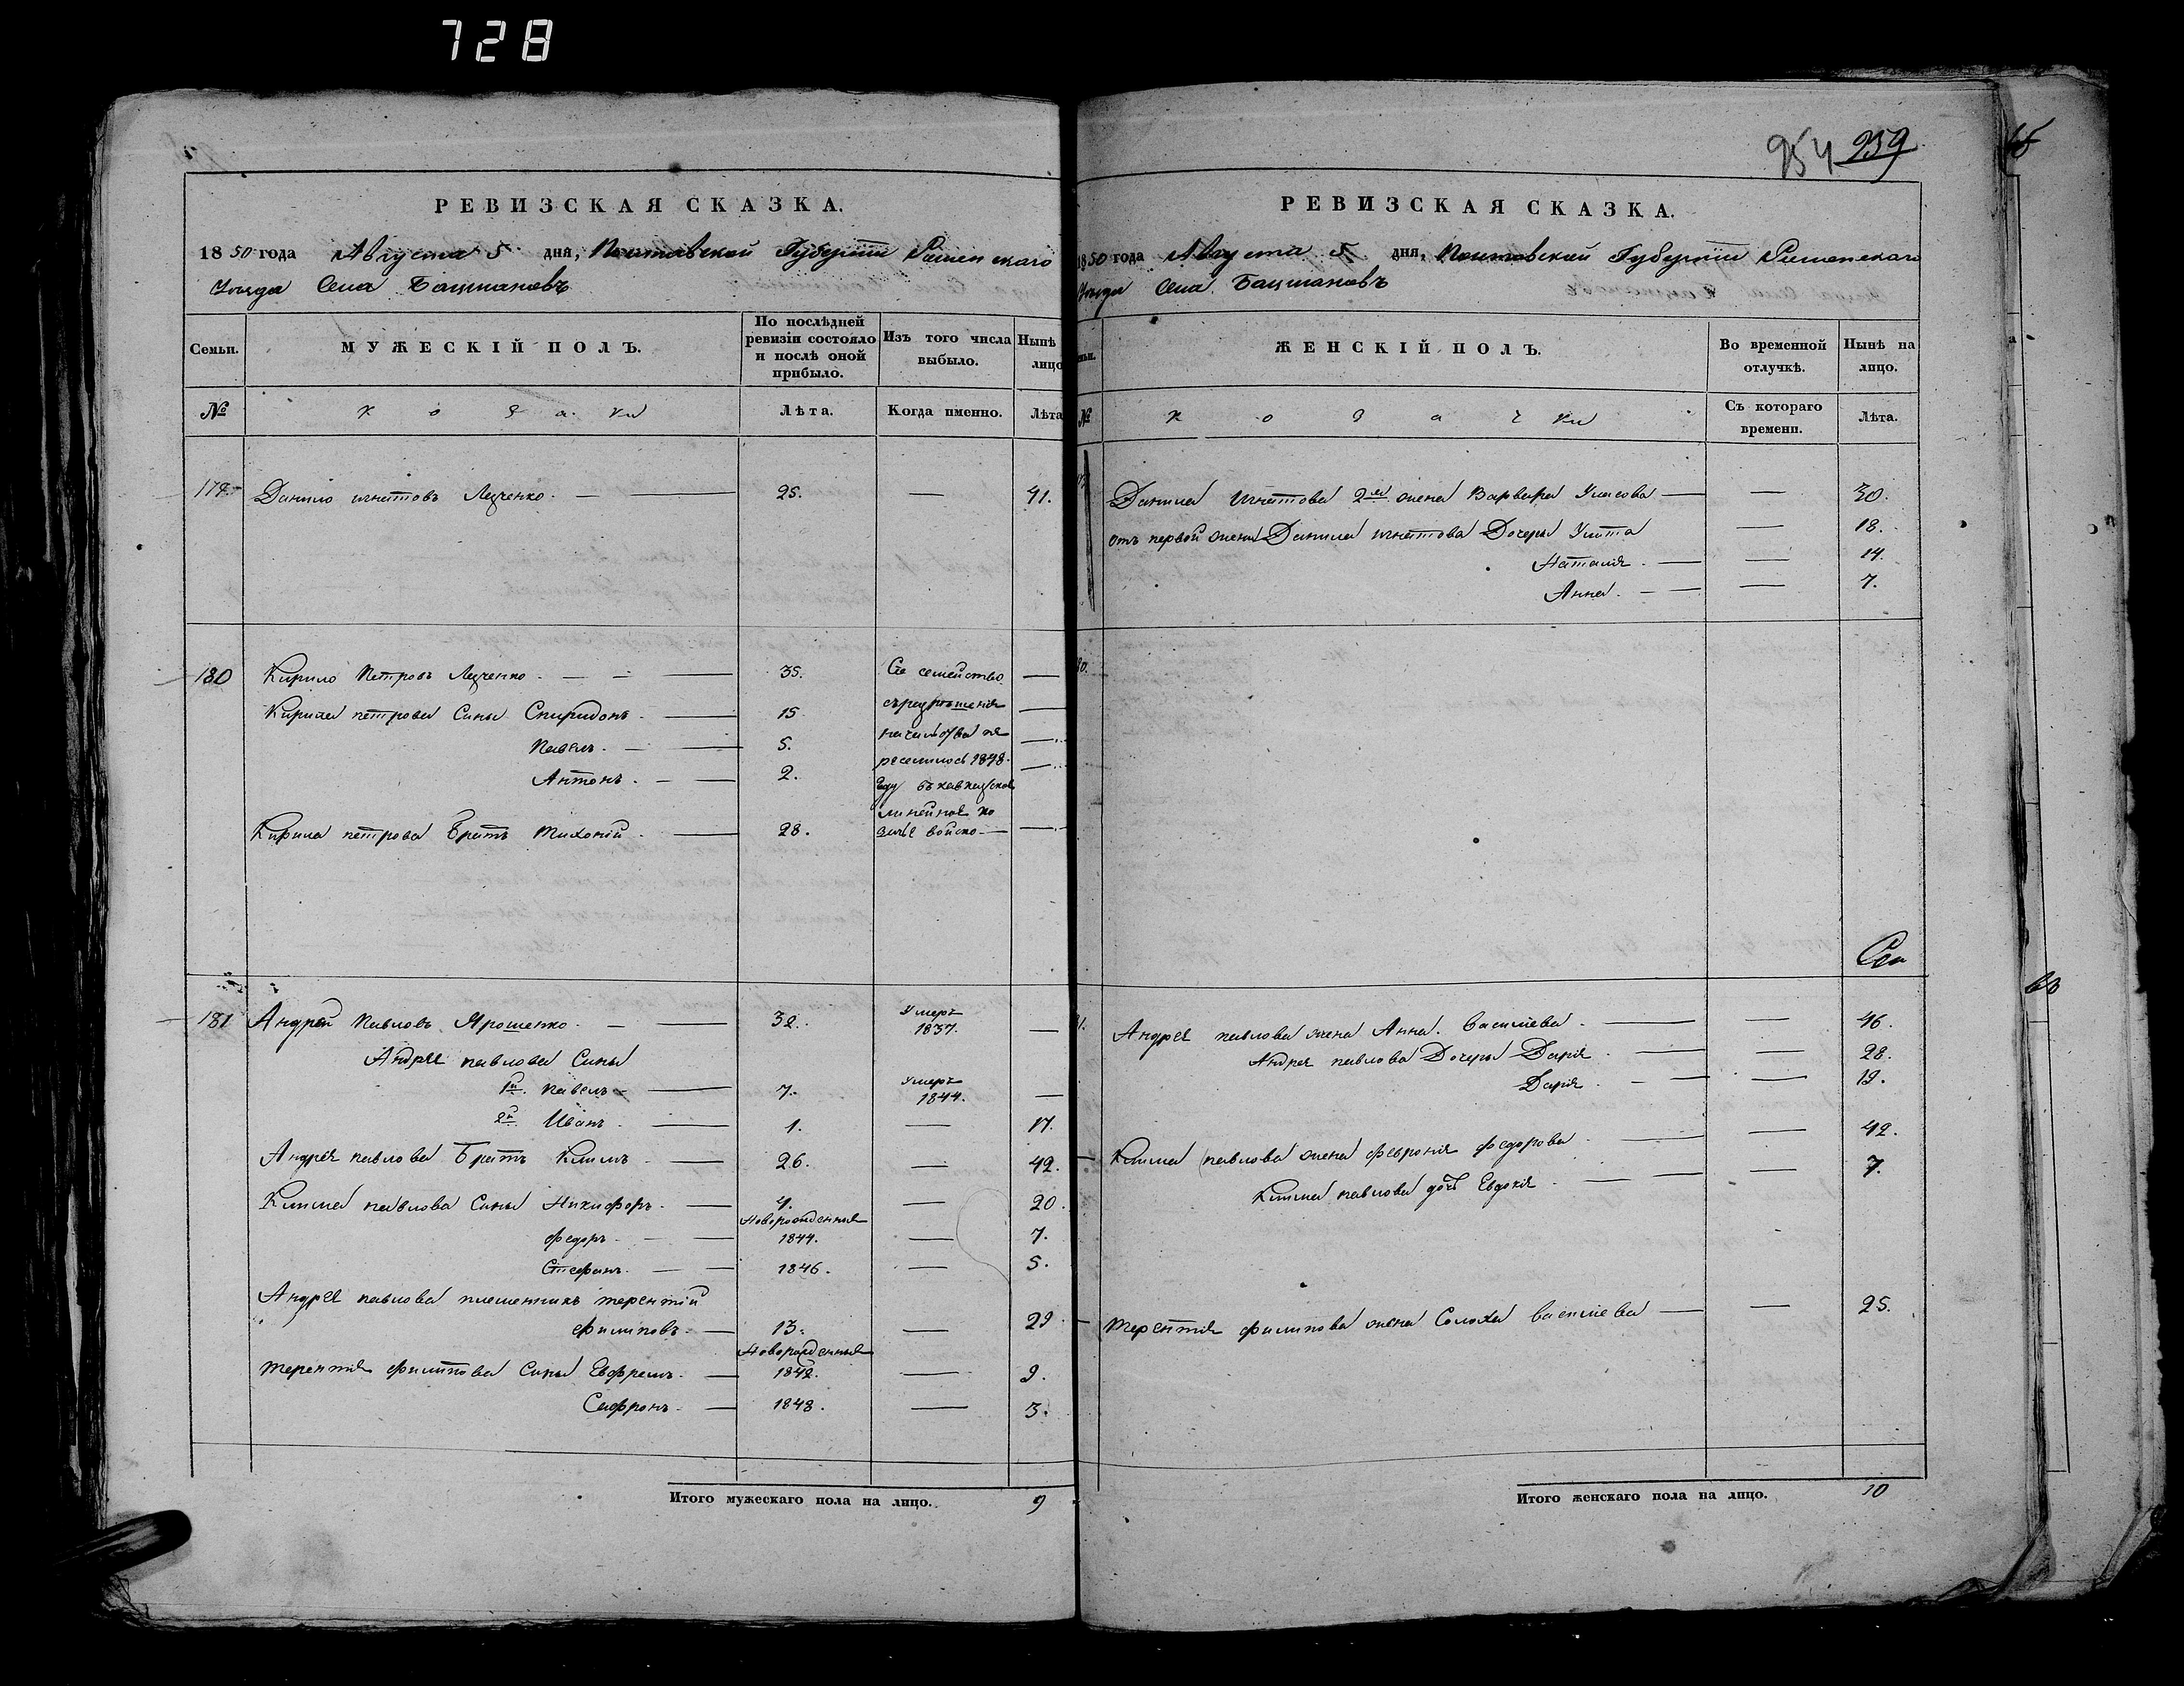 728
254 259
РЕВИЗСКАЯ СКАЗКА.
1850 года Августа 5 дня, Полтавской Губерніи Роменскаго
Уезда Села Бацмановъ
Семьи.
МУЖЕСКІЙ ПОЛЪ.
По послѣдней ревизіи состояло и послѣ оной прибыло.
Изъ того числа выбыло.
Нынѣ лицо
№
Козаки
Лѣта.
Когда именно.
Лѣта
179. Данило Игнатовъ Лещенко. — 25. — 41.
180 Кирило Петровъ Лещенко. — 35. Сіе семейство —
Кирила петрова Сины Спиридонъ. — 15. съ разрешенія —
Павелъ. — 5. начальства пе —
Антонъ. — 2. реселилось 1848. —
Году въ кавказское
линейное ко
Кирила петрова Братъ Тихоній. — 28. зачье войско —
181 Андрей Павловъ Ярошенко. — 32. Умеръ 1837. —
Андрея павлова Сины
1й. Павелъ — 7. Умеръ 1844. —
2й. Иванъ. — 1. — 17.
Андрея павлова Братъ Климъ — 26. — 42.
Клима павлова Сины Никифоръ. — 4. — 20.
Новорожденные
Федоръ. — 1844. — 7.
Стефанъ. — 1846. — 5.
Андрея павлова племенникъ терентій
Филиповъ. — 13. — 29
Новорожденные
Терентія Филипова Сины Евфремъ. — 1842. — 9.
Сафронъ. — 1848. — 3.
Итого мужескаго пола на лицо. 9
РЕВИЗСКАЯ СКАЗКА.
1850 года Августа 5 дня, Полтавской Губерніи Роменскаго
Уезда Села Бацмановъ
ЖЕНСКІЙ ПОЛЪ.
Во временной отлучкѣ.
Нынѣ на лицо.
№
Козачки
Съ котораго времени.
Лѣта.
Данила Игнатова 2я жена Варвара Уласова — — 30.
отъ первой жены Данила игнатова Дочеры Улита — 18.
Наталія. — — 14.
Анна. — — 7.
Андрея павлова жена Анна Василіева. — — 46.
Андрея павлова Дочеры Дарія. — — 28.
Дарія. — — 19.
Клима павлова жена Февронія Федорова. — — 42.
Клима павлова дочь Евдокія. — — 7.
Терентія филипова жена Солоха Василіева — — 25.
Итого женскаго пола на лицо. 10